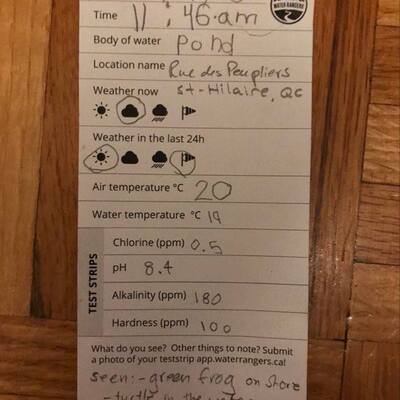 WATER RANGERS
Time 11:46 am
Body of water pond
Location name Rue des Peupliers
Weather now St-Hilaire, QC
Weather in the last 24h
Air temperature °C 20
Water temperature °C 19
TEST STRIPS
Chlorine (ppm) 0.5
pH 8.4
Alkalinity (ppm) 180
Hardness (ppm) 100
What do you see? Other things to note? Submit
a photo of your teststrip app.waterrangers.ca!
seen:- green frog on shore
- turtle in the water